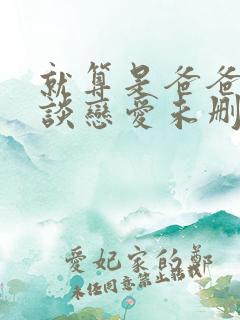 就算是爸爸
談戀愛未刪
愛妃家的鄭
未任同意禁止轉載